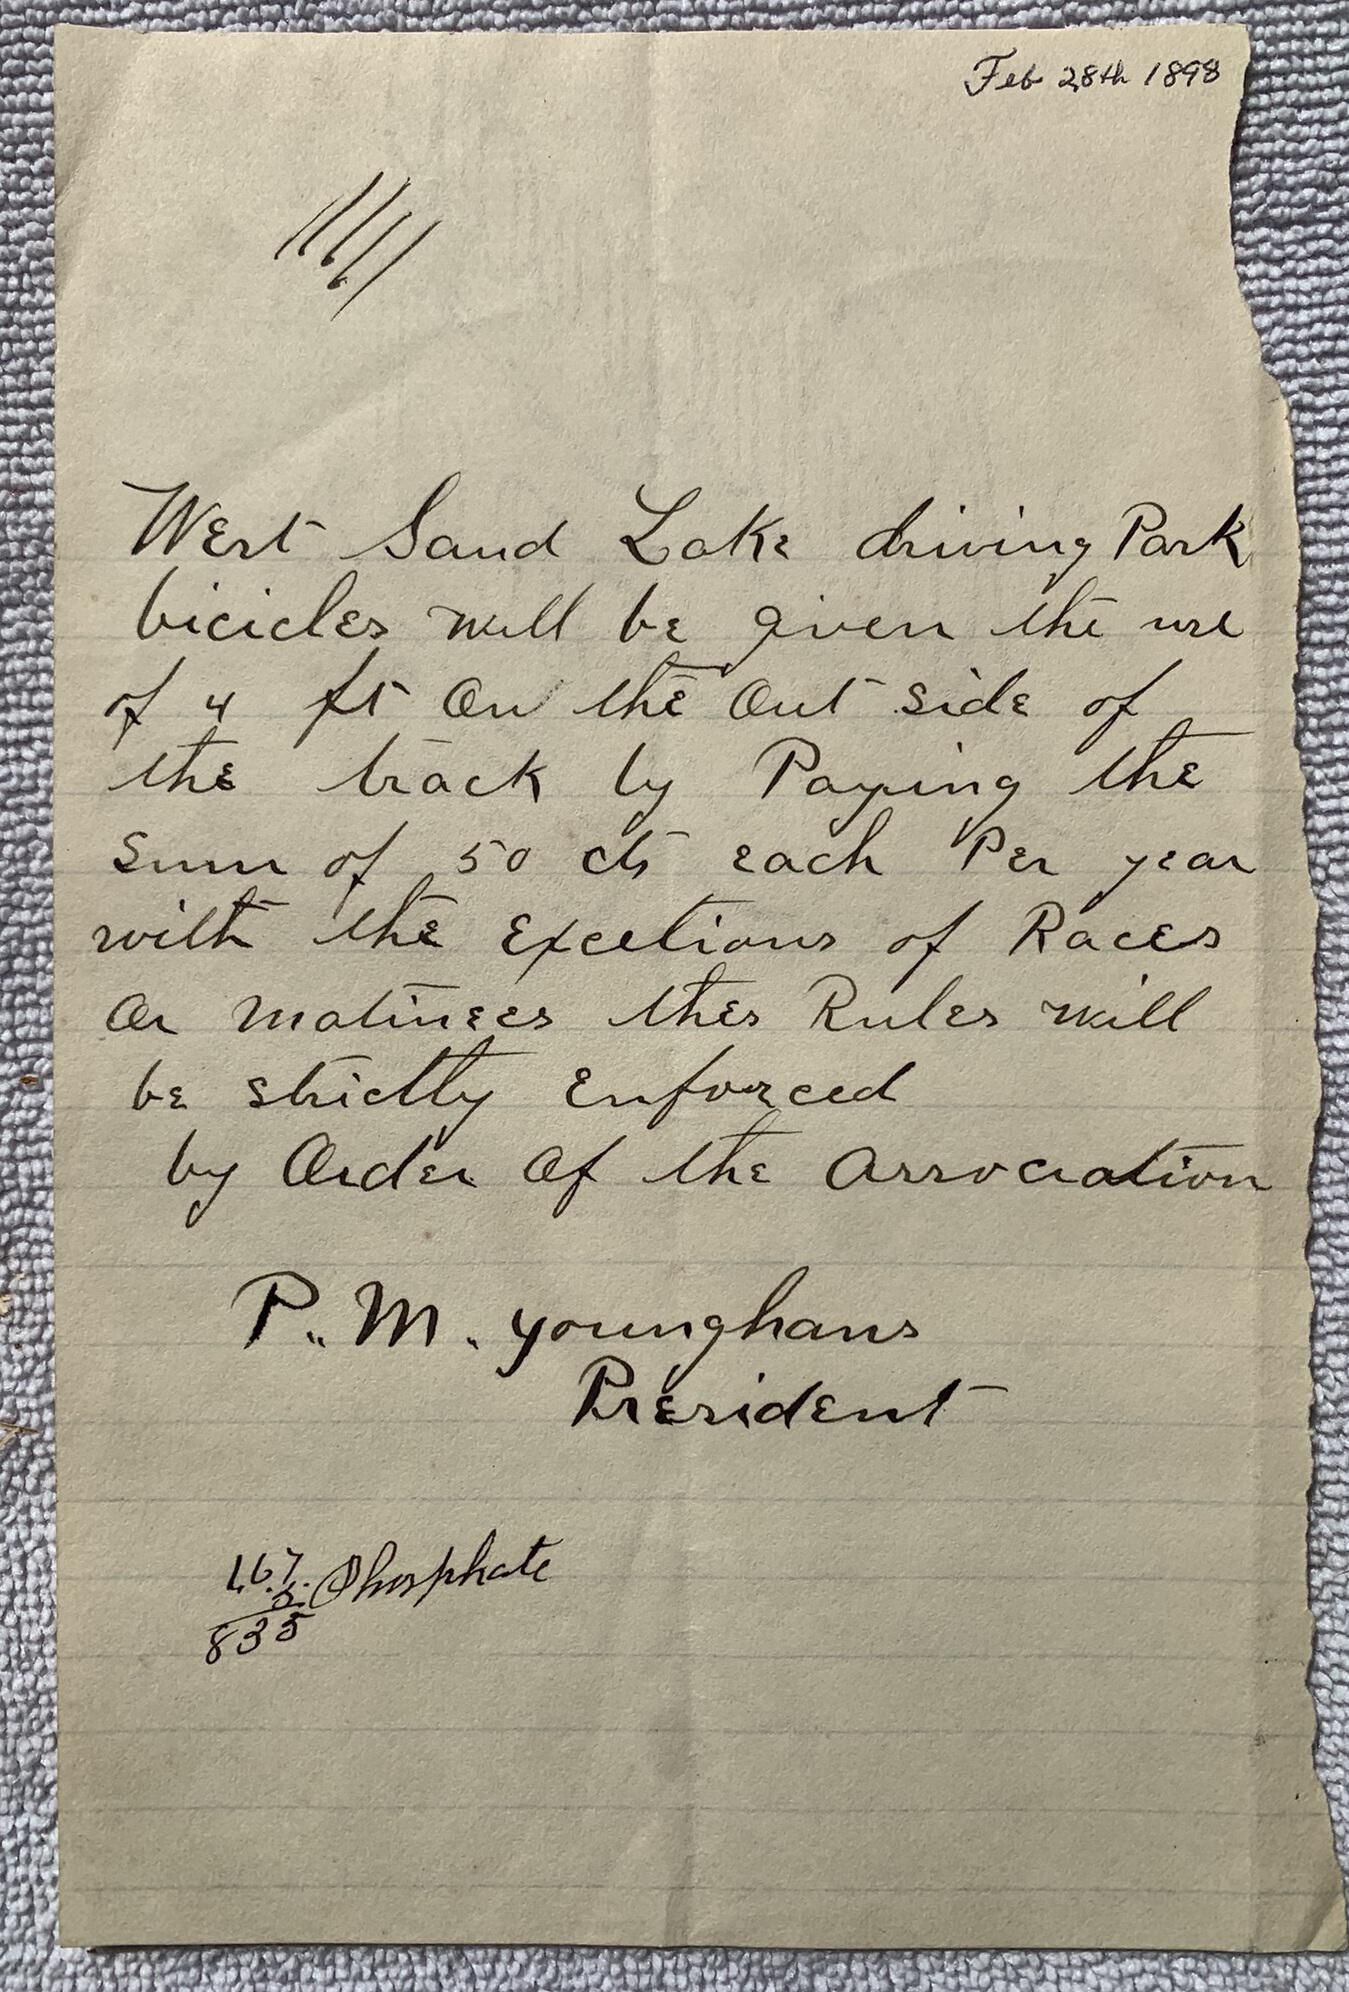 Feb 28th 1898
West Sand Lake driving Park
bicicles will be given the use
of 4 ft On the Out side of
the track by Paying the
sum of 50 cts each Per year
with the Excetions of Races
Or matinees thes Rules will
be strictly Enforced
by Order Of the association
P.. M. younghans
President
1.67. Phosphate
5
835